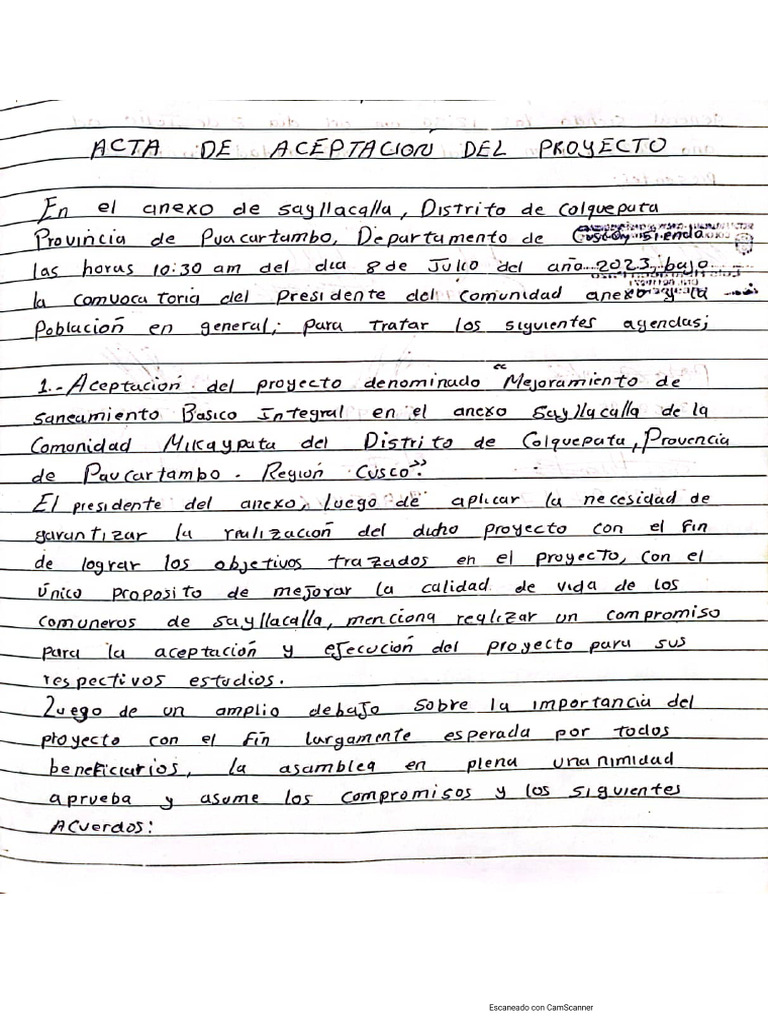 ACTA DE ACEPTACIÓN DEL PROYECTO
En el anexo de sayllacalla, Distrito de Colquepata
Provincia de Puacartambo, Departamento de Cusco, siendo
las horas 10:30 am del dia 8 de Julio del año 2023, bajo
la comvocatoria del Presidente del comunidad anexo y la
Población en general; para tratar los siguientes agendas;
1.- Aceptación del proyecto denominado “Mejoramiento de
saneamiento Basico Integral en el anexo sayllacalla de la
Comonidad Mikaypata del Distrito de Colquepata, Provencia
de Paucartambo. Región Cusco”.
El presidente del anexo, luego de aplicar la necesidad de
garantizar la realización del dicho proyecto con el fin
de lograr los objetivos trazados en el proyecto, con el
único proposito de mejorar la calidad de vida de los
comuneros de sayllacalla, menciona realizar un compromiso
para la aceptación y ejecución del proyecto para sus
respectivos estudios.
Luego de un amplio debajo sobre la importancia del
proyecto con el fin largamente esperada por todos
beneficiarios, la asamblea en plena unanimidad
aprueba y asume los compromisos y los siguientes
Acuerdos:
Escaneado con CamScanner